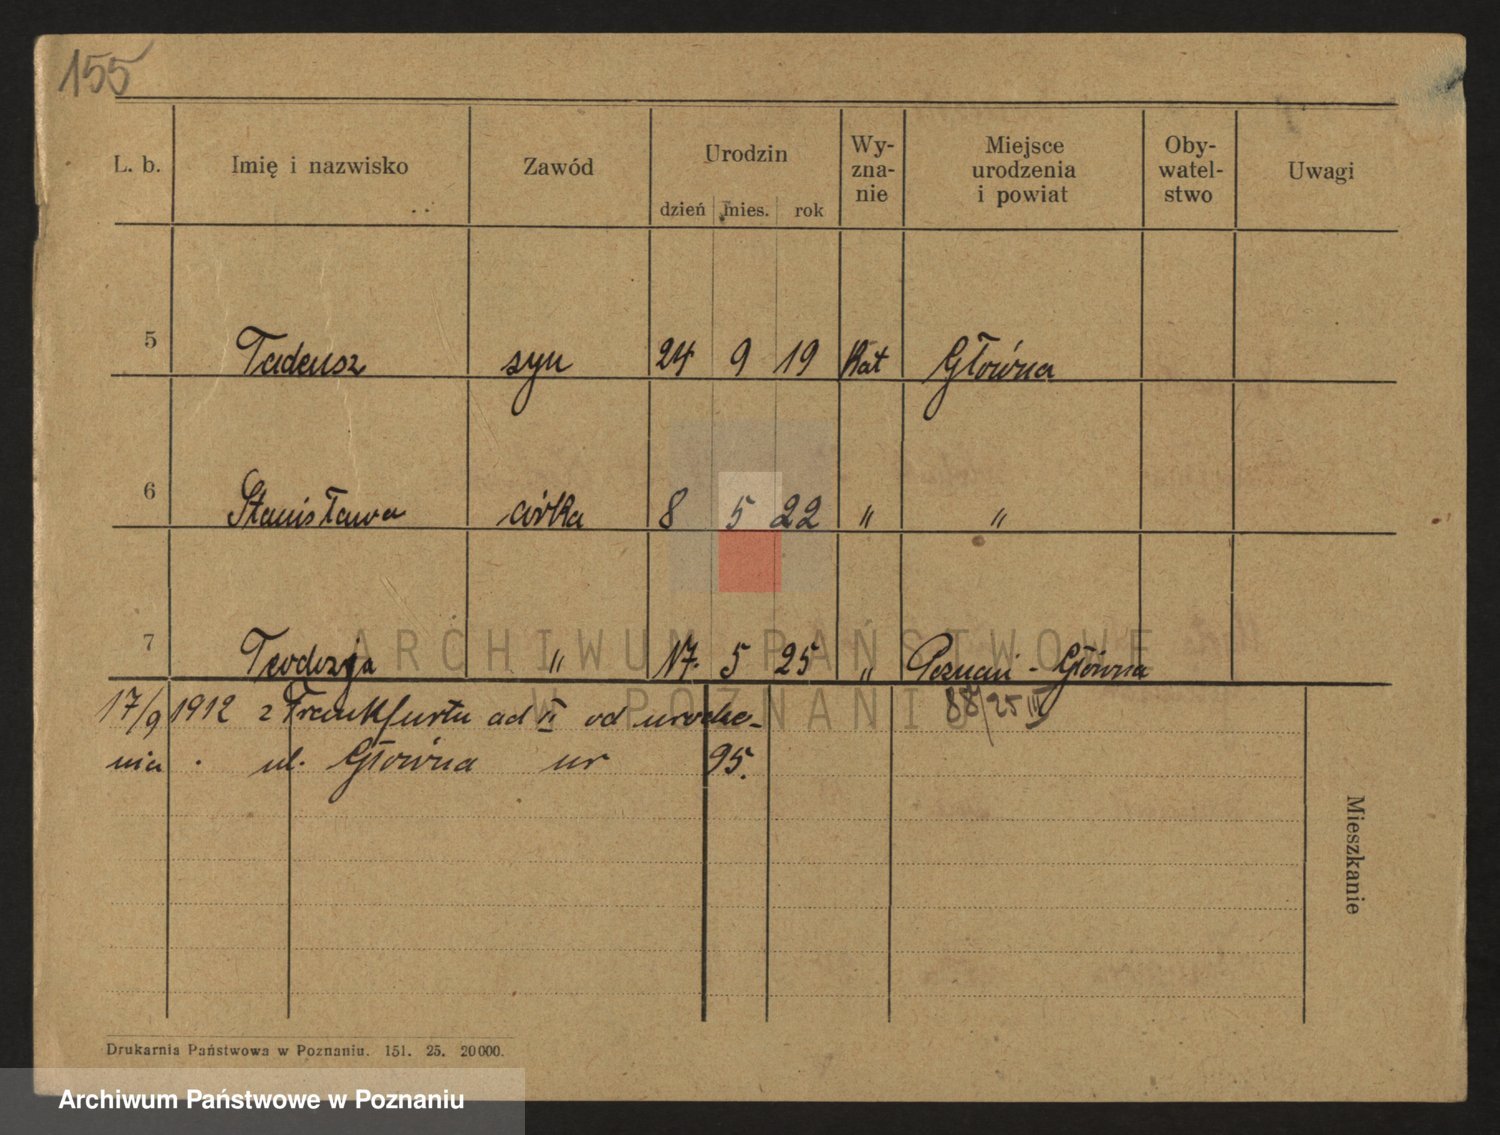 155
L. b. Imię i nazwisko Zawód Urodzin Wy-zna-nie Miejsce urodzenia i powiat Oby-watel-stwo Uwagi
dzień mies. rok
5 Tadeusz syn 24 9 19 Kat Główna
6 Stanisława córka 8 5 22 " "
7 Teodozja " 17. 5 25 " Poznań - Główna
17/9 1912 z Frankfurtu ad od urodze-
nia . ul. Główna nr 95.
88/25 III
Mieszkanie
Drukarnia Państwowa w Poznaniu. 151. 25. 20000.
ARCHIWUM PAŃSTWOWE
W POZNANIU
Archiwum Państwowe w Poznaniu